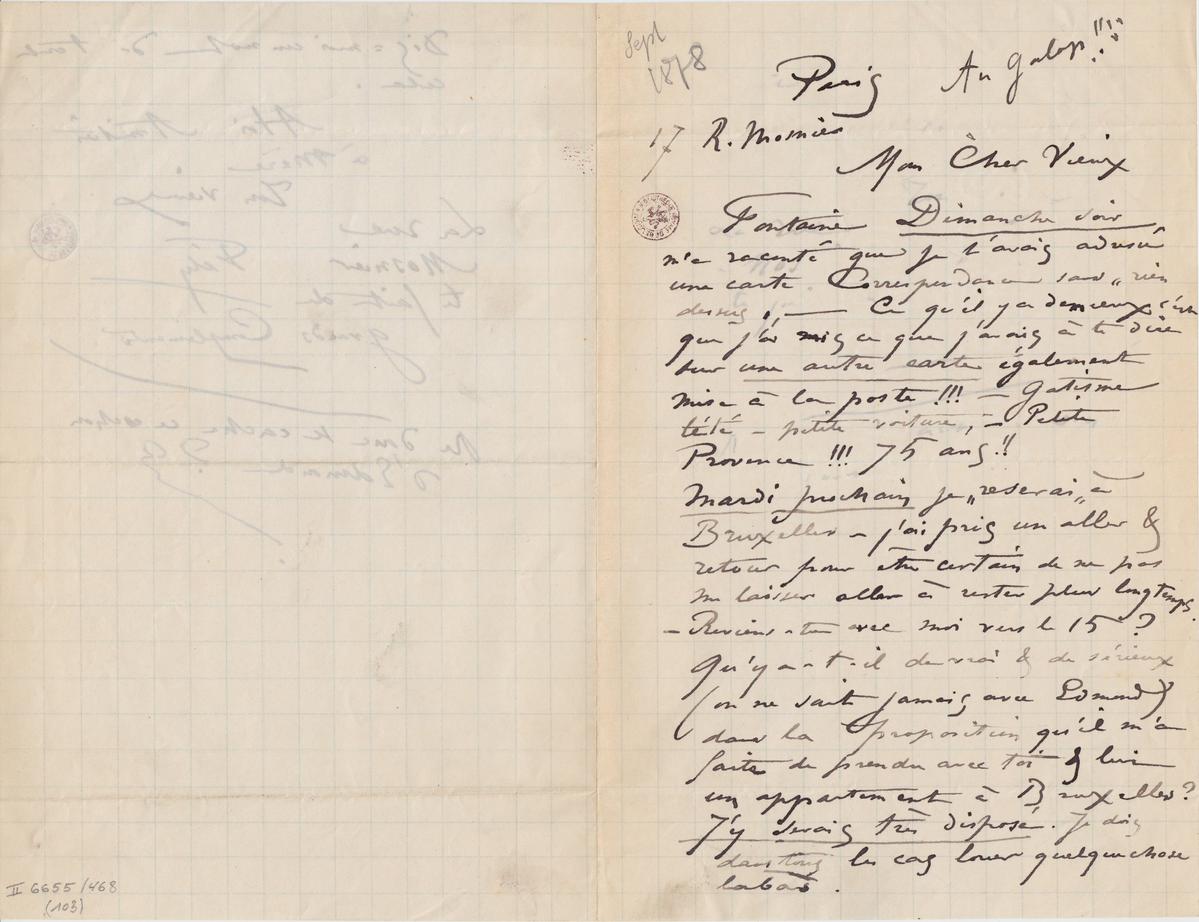 Sept
1878
Paris Au Galop!!!!
17 R. Mosnier
Mon Cher Vieux
Fontaine Dimanche soir
m'a raconté que je t'avais adressé
une carte Correspondance sans „rien
dessus„ — Ce qu'il y a de mieux c'est
que j'ai mis ce que j'avais à te dire
sur une autre carte également
mise à la poste!!! — Gatisme
tété – petite voiture, – Petite
Provence!!! 75 ans!!
Mardi prochain je „reserai„ à
Bruxelles – j'ai pris un aller &
retour pour être certain de ne pas
me laisser aller à rester plus longtemps.
– Reviens-tu avec moi vers le 15?
Qu'y a-t-il de vrai & de sérieux
(on ne sait jamais avec Edmond)
dans la proposition qu'il m'a
faite de prendre avec toi & lui
un appartement à Bruxelles?
J'y serais très disposé. Je dois
dans tous les cas louer quelque chose
labas.
II 6655/468
(103)